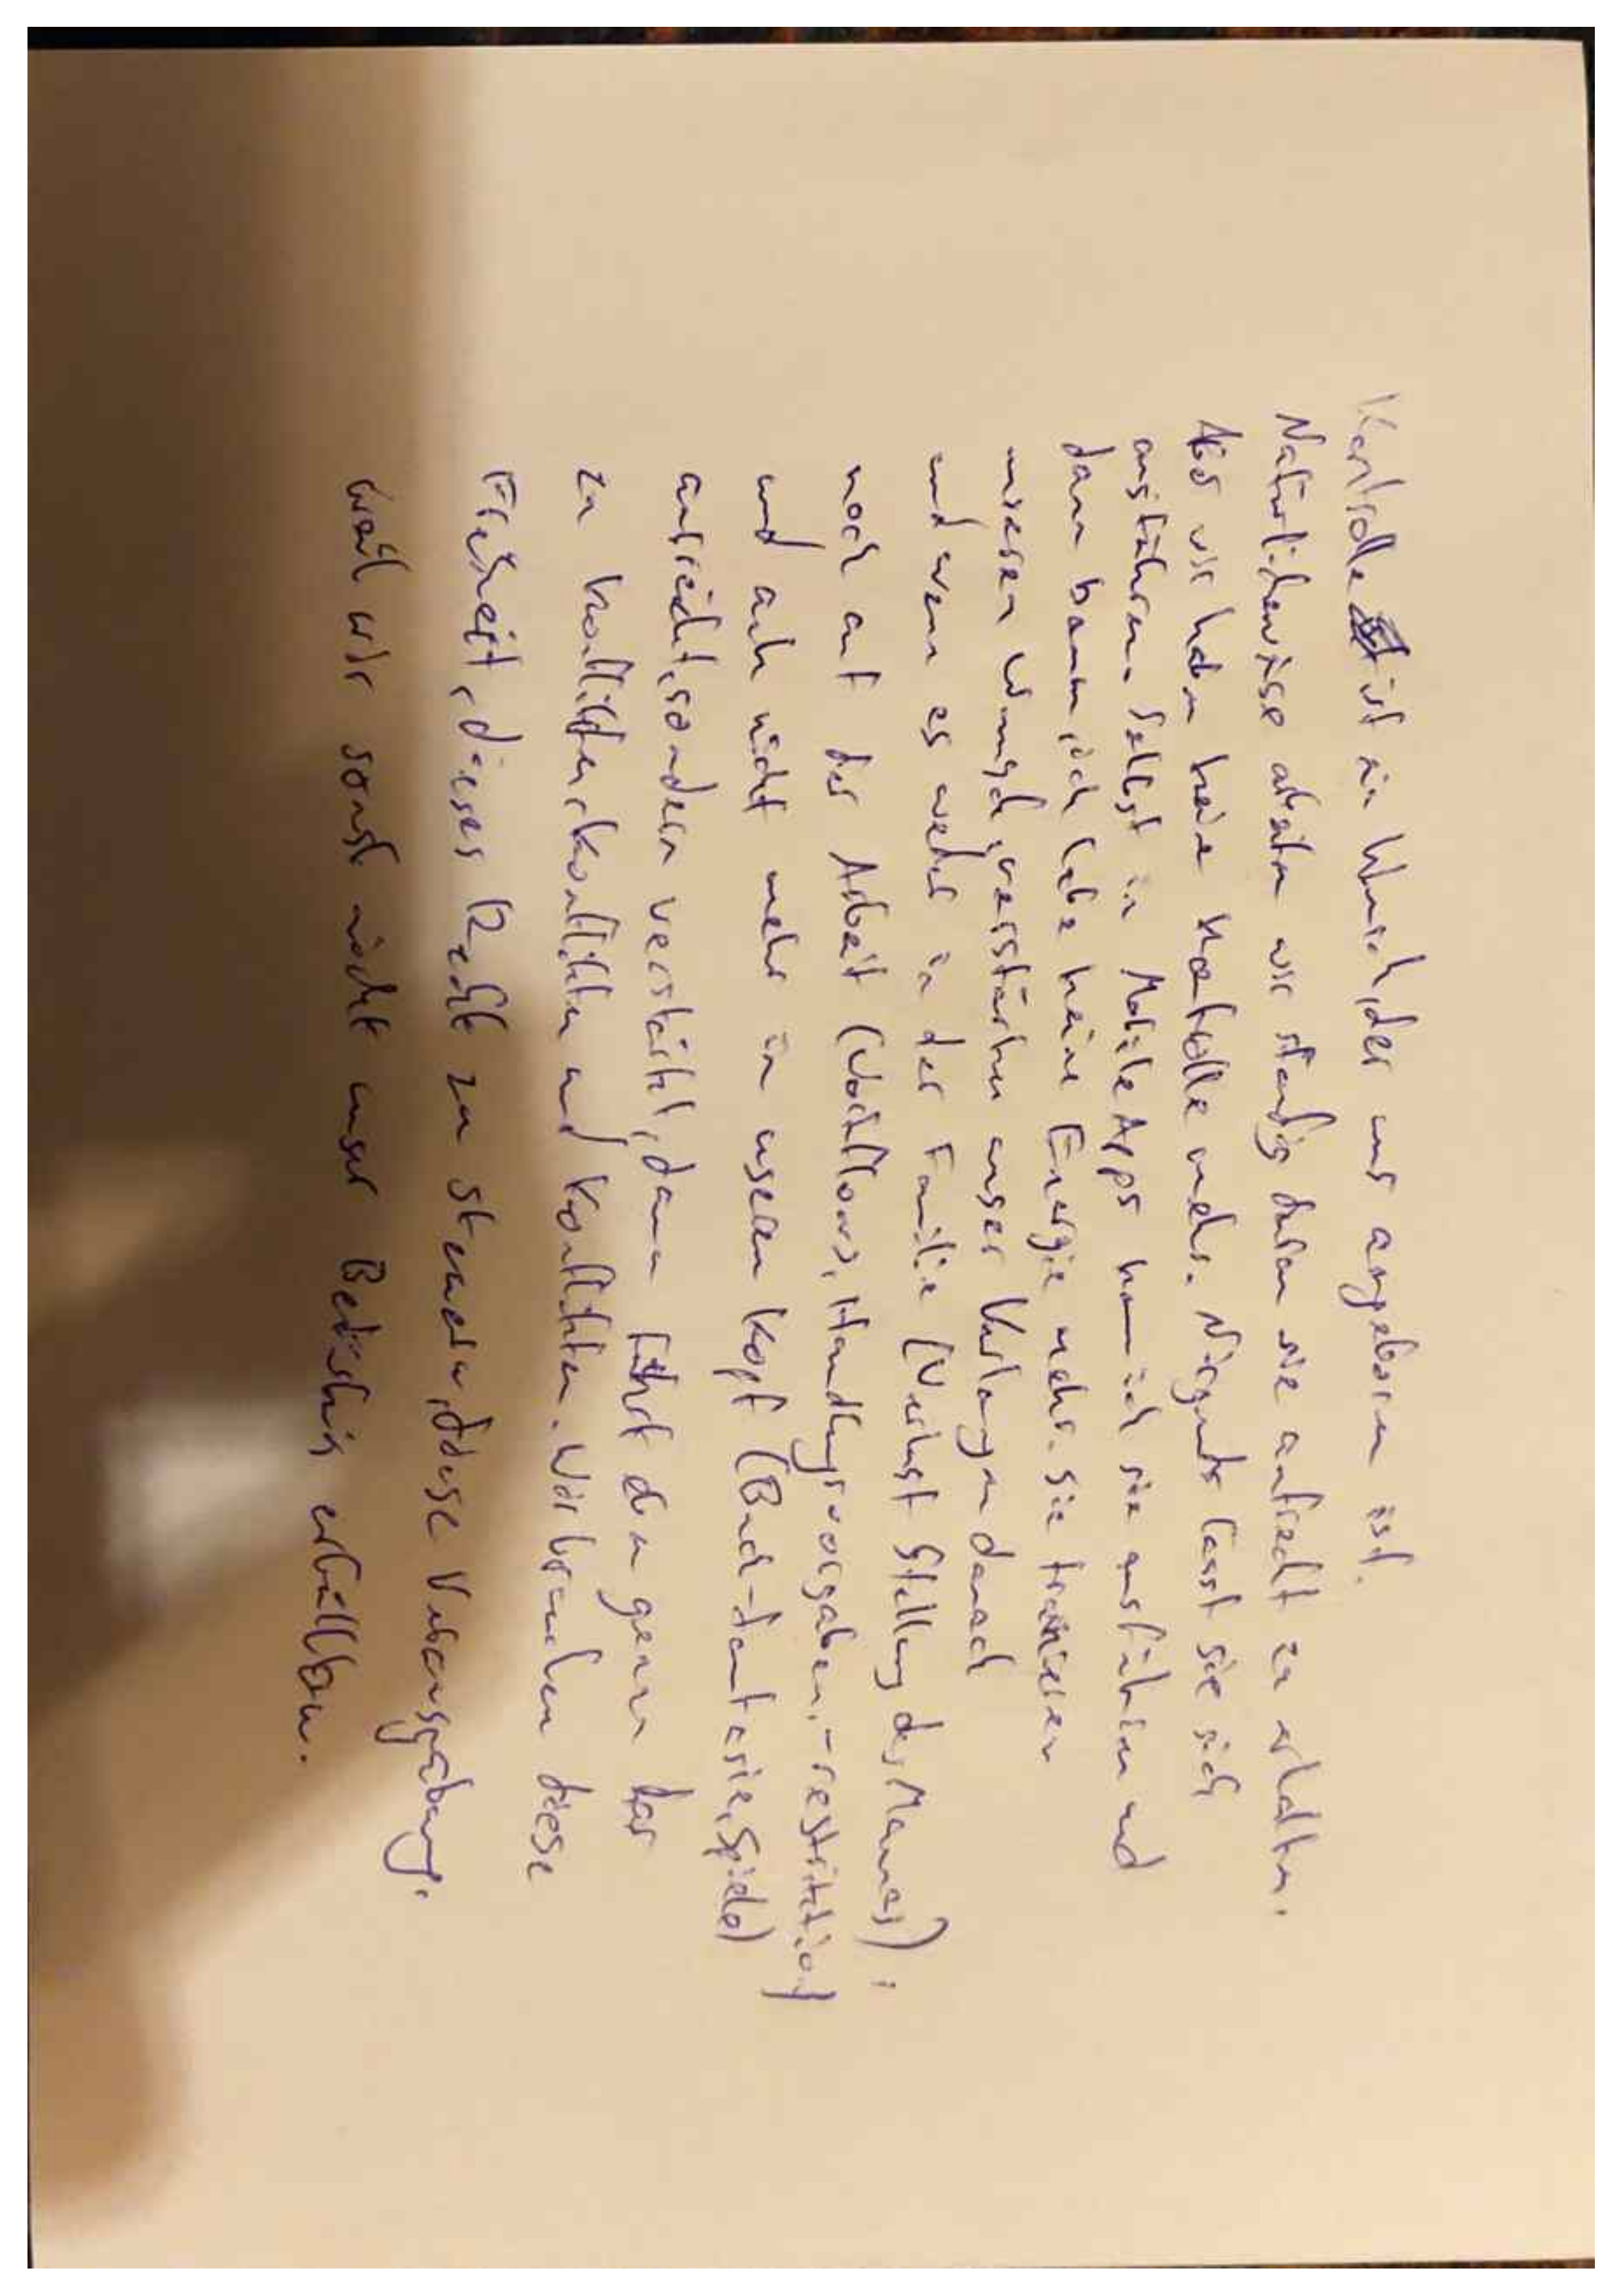 Kontrolle ist ein Wunsch, der uns angeboren ist.
Natürlicherweise arbeiten wir ständig daran sie aufrecht zu erhalten.
Aber wir haben keine Kontrolle mehr. Nirgends lässt sie sich
ausführen. Selbst in Mobile Apps kann ich sie ausführen und
dann kann ich habe keine Energie mehr. Sie trainieren
unseren Wunsch, verstärken unser Verlangen danach
und wenn es weder in der Familie (Verlust Stellung des Mannes);
noch auf der Arbeit (Workflows, Handlungsvorgaben, -restriktion)
und auch nicht mehr in unserem Kopf (Buch-Fantasie, Spiele)
ausreicht, sondern verstärkt, dann führt den genau das
zu Konflikten, Konflikten und Konflikten. Wir brauchen diese
Freiheit, dieses Recht zu steuern, diese
weil wir sonst nicht unser Bedürfnis erfüllen.